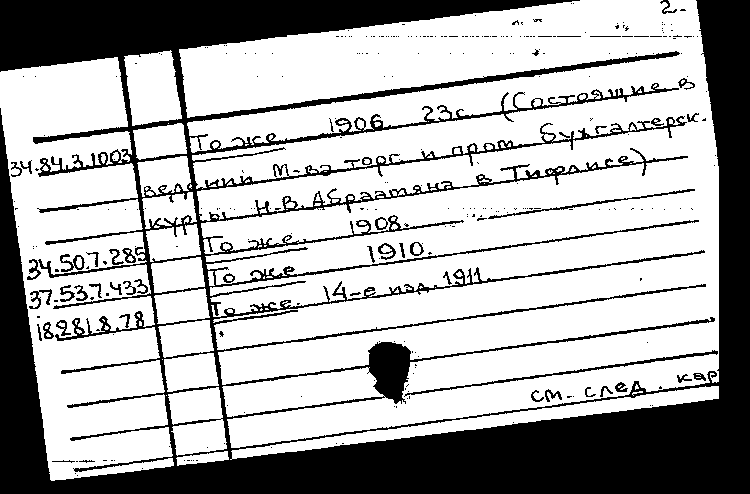 2.
34.84.3.1003 То же. 1906. 23с. (Состоящие в
ведении М-ва торг. и пром. Бухгалтерск.
курсы Н.В. Абраамяна в Тифлисе).
34.50.7.285 То же. 1908.
37.53.7.433 То же 1910.
18.281.8.78 То же. 14-е изд. 1911.
см. след. кар